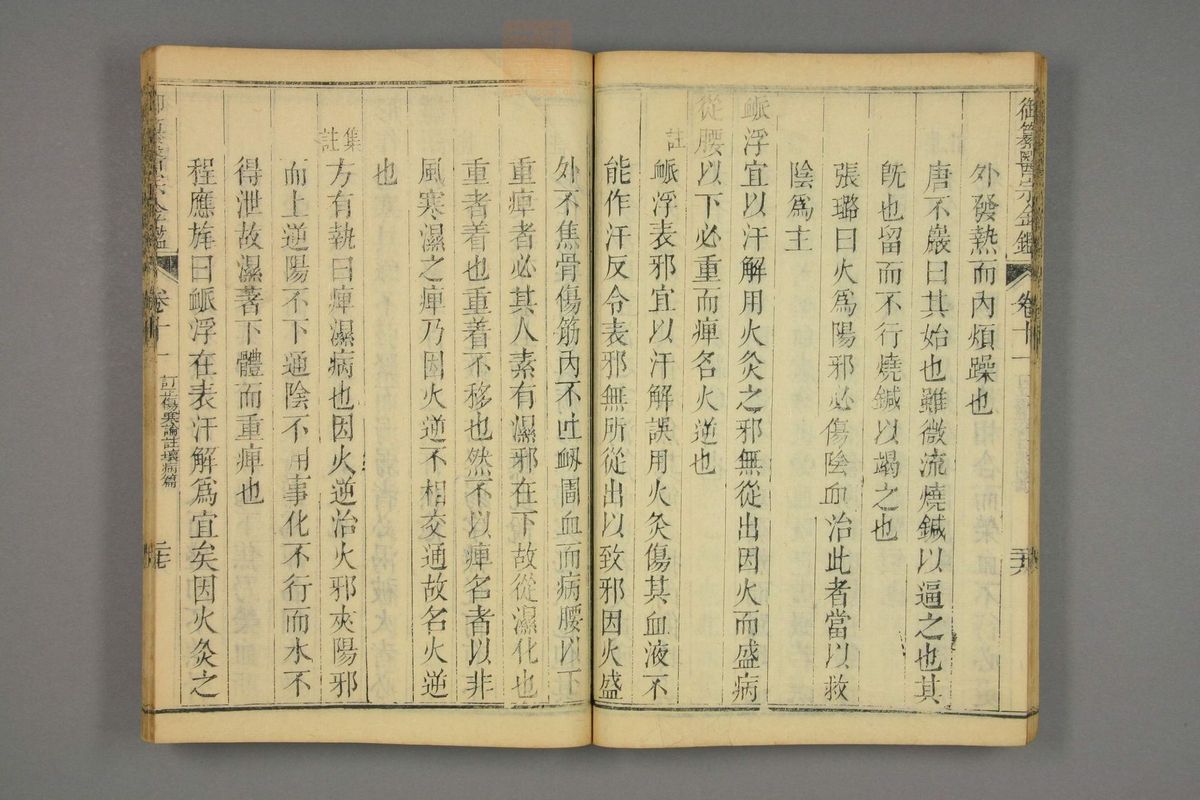 御纂醫宗金鑑
卷十一
外發熱而內煩躁也
唐不巖曰其始也雖微流燒鍼以逼之也其
旣也留而不行燒鍼以竭之也
張璐曰火爲陽邪必傷陰血治此者當以救
陰爲主
脈浮宜以汗解用火灸之邪無從出因火而盛病
從腰以下必重而痺名火逆也
註脈浮表邪宜以汗解誤用火灸傷其血液不
能作汗反令表邪無所從出以致邪因火盛
外不焦骨傷筋內不吐衂圊血而病腰以下
重痺者必其人素有濕邪在下故從濕化也
重者着也重着不移也然不以痺名者以非
風寒濕之痺乃因火逆不相交通故名火逆
也
集註方有執曰痺濕病也因火逆治火邪夾陽邪
而上逆陽不下通陰不用事化不行而水不
得泄故濕著下體而重痺也
程應旄曰脈浮在表汗解爲宜矣因火灸之
卷十一
訂正傷寒論註壞病篇